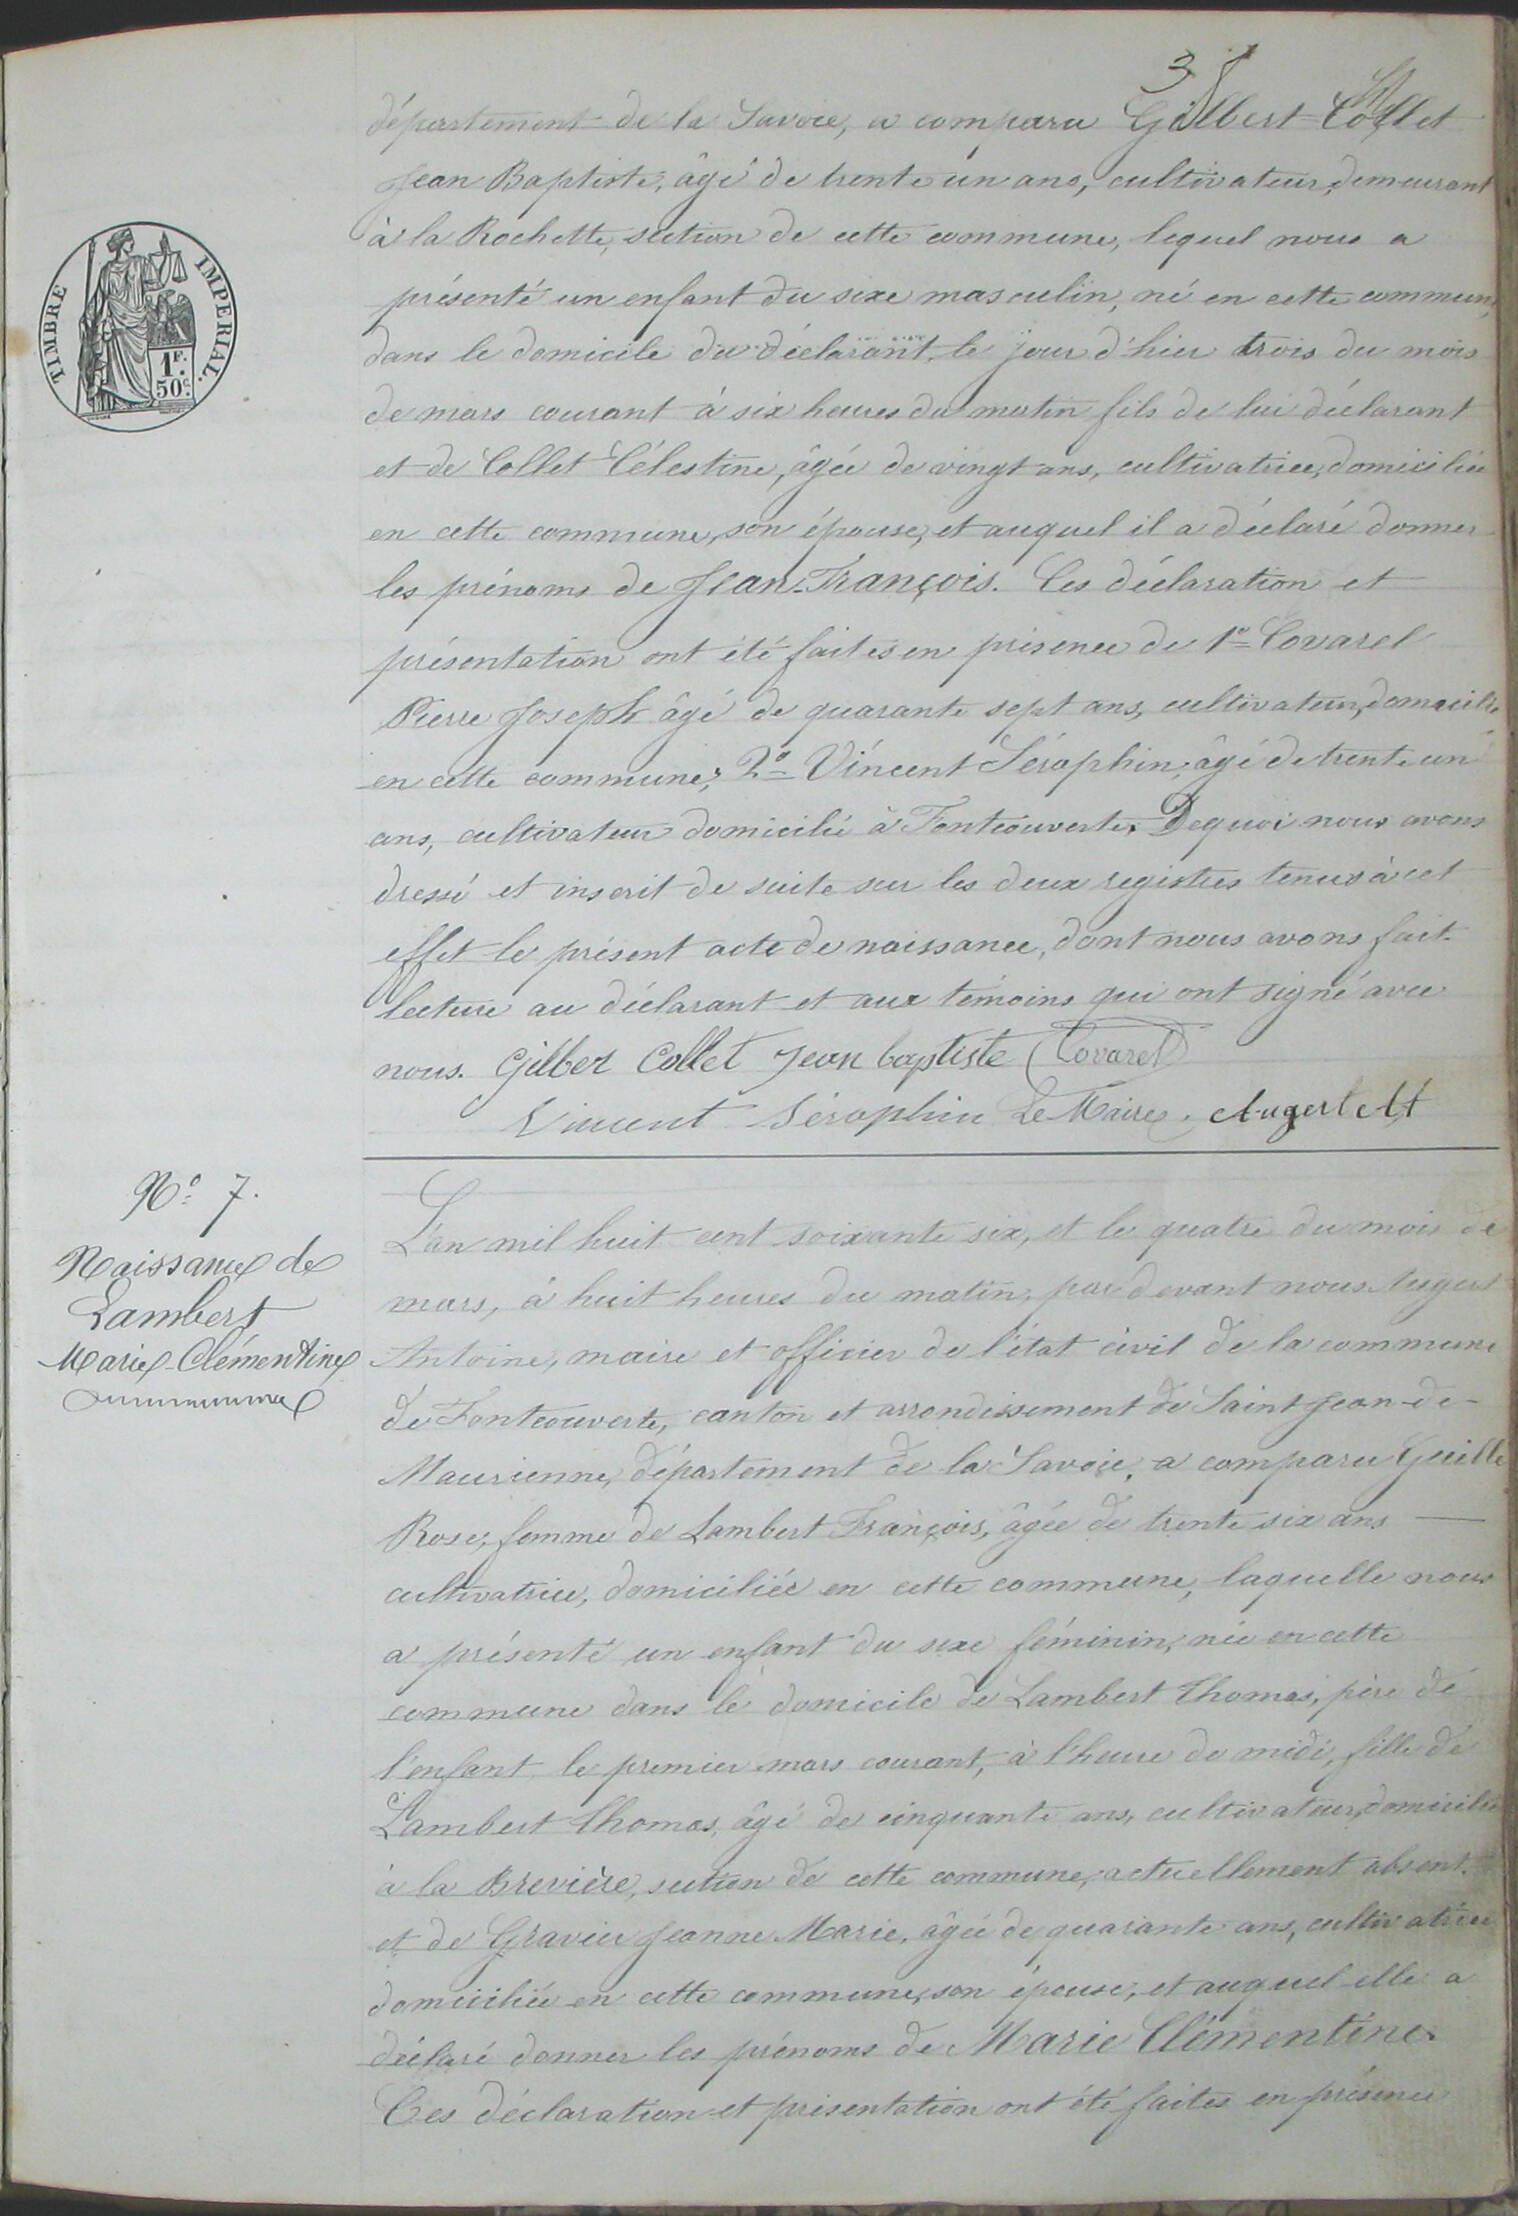 3
département de la Savoie, a comparu Gilbert-Collet
Jean Baptiste, âgé de trente un ans, cultivateur, demeurant
à la Rochette, section de cette commune, lequel nous a
présenté un enfant du sexe masculin, né en cette commune,
dans le domicile du déclarant, le jour d'hier trois du mois
de mars courant à six heures du matin fils de lui déclarant
et de Collet Célestine, âgée de vingt ans, cultivatrice, domiciliée
en cette commune, son épouse, et auquel il a déclaré donner
les prénoms de Jean-François. Ces déclaration et
présentation ont été faites en présence de 1° Covarel
Pierre Joseph âgé de quarante sept ans, cultivateur, domicilié
en cette commune; 2° Vincent Séraphin, âgé de trente un
ans, cultivateur domicilié à Fontcouverte. De quoi nous avons
dressé et inscrit de suite sur les deux registres tenus à cet
effet le présent acte de naissance, dont nous avons fait
lecture au déclarant et aux témoins qui ont signé avec
nous. Gilber Collet Jean baptiste Covarel
Vincent Séraphin Le Maire. Augert At
TIMBRE IMPERIAL.
1F.
50c.
N° 7.
Naissance de
Lambert
Marie Clémentine
L'an mil huit cent soixante six, et le quatre du mois de
mars, à huit heures du matin, par devant nous Augert
Antoine, maire et officier de l'état civil de la commune
de Fontcouverte, canton et arrondissement de Saint Jean-de-
Maurienne, département de la Savoie, a comparu Guille
Rose, femme de Lambert François, âgée de trente six ans
cultivatrice, domiciliée en cette commune, laquelle nous
a présenté un enfant du sexe féminin, née en cette
commune dans le domicile de Lambert Thomas, père de
l'enfant le premier mars courant, à l'heure de midi, fille de
Lambert Thomas, âgé de cinquante ans, cultivateur, domicilié
à la Brevière, section de cette commune, actuellement absent.
et de Gravier Jeanne Marie, âgée de quarante ans, cultivatrice
domiciliée en cette commune, son épouse, et auquel elle a
déclaré donner les prénoms de Marie Clémentine.
Ces déclaration et présentation ont été faites en présence